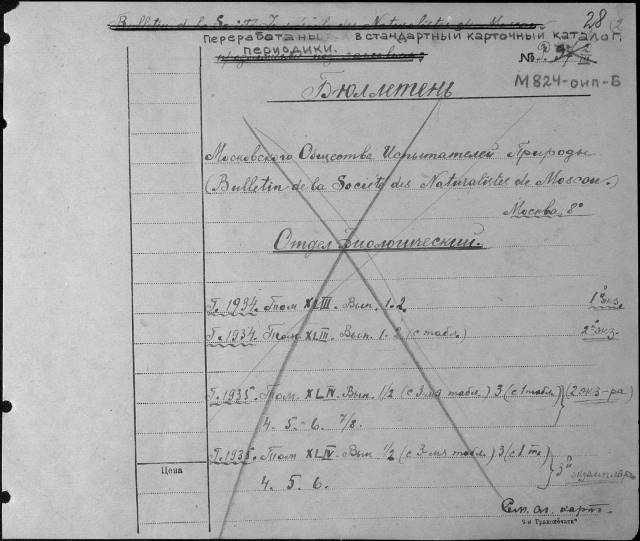 Bulletin de la Société des Naturalistes de Moscou. 28 (2
Переработаны в стандартный карточный каталог.
периодики.
№
М824-оип-Б
Бюллетень
Московского Общества Испытателей Природы
(Bulletin de la Société des Naturalistes de Moscou.)
Москва, 8°
Отдел Биологический.
Г. 1934. Том XLIII. Вып. 1-2. 1й экз.
Г. 1934. Том XLIII. Вып. 1-2 (с табл.) 2й экз.
Г. 1935. Том. XLIV. Вып. 1/2 (с 3-мя табл.) 3 (с 1 табл.) (2 экз-ра)
4. 5. 6. 7/8.
Г. 1935. Том XLIV. Вып. 1/2 (с 3-мя табл.) 3 (с 1 т.)
3й экземпляр
4. 5. 6.
Цена
См. сл. карт.